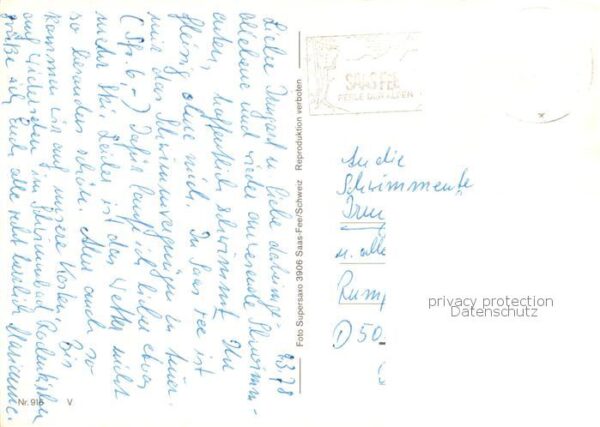 4.3.78
Liebe Irmgard u. liebe daheimge-
bliebene und wieder anwesende Schwimm-
enten, hoffentlich schwimmt Ihr
fleißig ohne mich. In Saas Fee ist
mir das Schwimmvergnügen zu teuer.
(Sfr. 6.-) Dafür lauf ich lieber etwas
mehr Ski. Leider ist das Wetter nicht
so besonders schön. Aber auch so
kommen wir auf unsere Kosten. Bis
auf Wiedersehen im Schwimmbad Rodenkirchen
grüße ich Euch alle recht herzlich Marianne.
Nr. 916 V
Foto Supersaxo 3906 Saas-Fee/Schweiz Reproduktion verboten
SAAS FEE
PERLE DER ALPEN
An die
Schwimmente
Irm
u. alle
D 50
privacy protection
Datenschutz